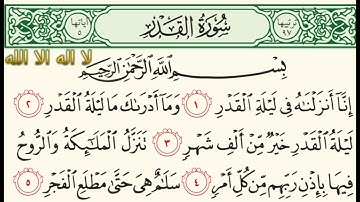 ترتيبها ٩٧ سُورَةُ القَدْرِ آياتها ٥
لا اله الا الله
بِسْمِ اللَّهِ الرَّحْمَٰنِ الرَّحِيمِ
إِنَّا أَنزَلْنَٰهُ فِى لَيْلَةِ الْقَدْرِ ١ وَمَا أَدْرَىٰكَ مَا لَيْلَةُ الْقَدْرِ ٢
لَيْلَةُ الْقَدْرِ خَيْرٌ مِّنْ أَلْفِ شَهْرٍ ٣ تَنَزَّلُ الْمَلَٰٓئِكَةُ وَالرُّوحُ
فِيهَا بِإِذْنِ رَبِّهِم مِّن كُلِّ أَمْرٍ ٤ سَلَٰمٌ هِىَ حَتَّىٰ مَطْلَعِ الْفَجْرِ ٥